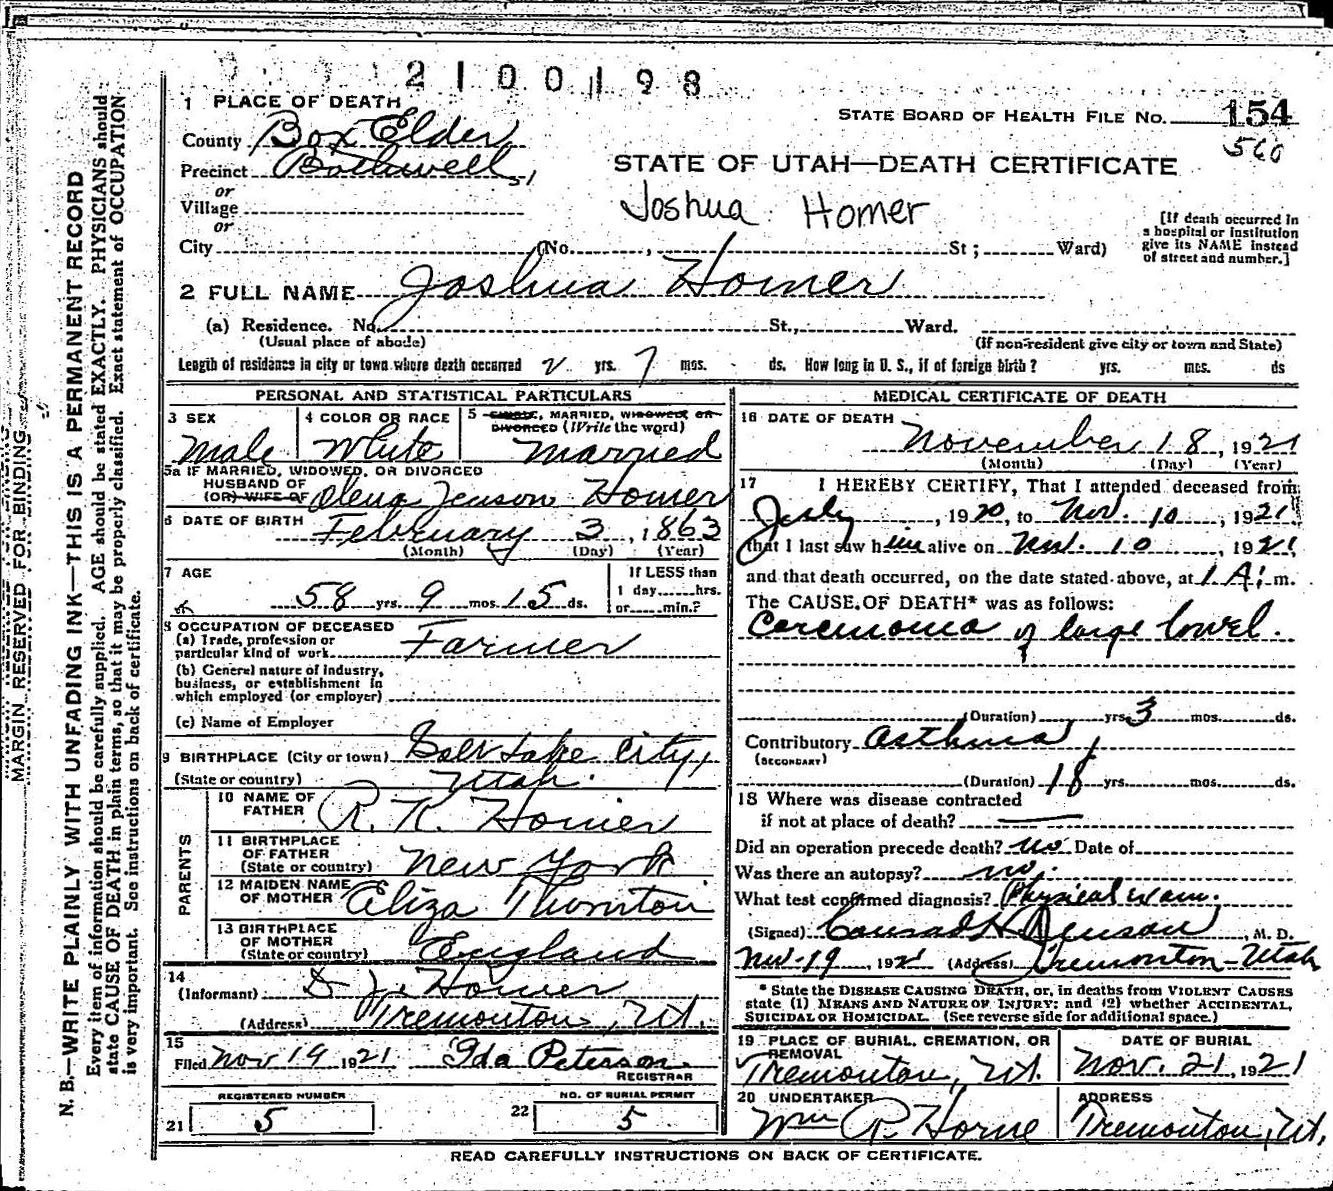 2100198
1 PLACE OF DEATH
County Box Elder
STATE BOARD OF HEALTH FILE No. 154
560
Precinct Bothwell
STATE OF UTAH—DEATH CERTIFICATE
or
Village
or
Joshua Homer
[If death occurred in a hospital or institution give its NAME instead of street and number.]
City (No. , St; Ward)
2 FULL NAME Joshua Homer
(a) Residence. No. St., Ward.
(Usual place of abode) (If non-resident give city or town and State)
Length of residence in city or town where death occurred 2 yrs. 7 mos. ds. How long in U. S., if of foreign birth? yrs. mos. ds
PERSONAL AND STATISTICAL PARTICULARS
3 SEX Male
4 COLOR OR RACE White
5 SINGLE, MARRIED, WIDOWED OR DIVORCED (Write the word) Married
5a IF MARRIED, WIDOWED, OR DIVORCED
HUSBAND OF
(OR) WIFE OF Olena Jenson Homer
6 DATE OF BIRTH February 3, 1863
(Month) (Day) (Year)
7 AGE 58 yrs. 9 mos. 15 ds.
If LESS than
1 day hrs.
or min.?
8 OCCUPATION OF DECEASED
(a) Trade, profession or
particular kind of work Farmer
(b) General nature of industry,
business, or establishment in
which employed (or employer)
(c) Name of Employer
9 BIRTHPLACE (City or town) Salt Lake City,
(State or country) Utah.
PARENTS
10 NAME OF FATHER R. K. Homer
11 BIRTHPLACE OF FATHER (State or country) New York
12 MAIDEN NAME OF MOTHER Eliza Thornton
13 BIRTHPLACE OF MOTHER (State or country) England
14
(Informant) J. Homer
(Address) Tremonton, Ut.
15
Filed Nov 19 1921 Ida Peterson
REGISTRAR
REGISTERED NUMBER
21 5
NO. OF BURIAL PERMIT
22 5
MEDICAL CERTIFICATE OF DEATH
16 DATE OF DEATH
November 18, 1921
(Month) (Day) (Year)
17 I HEREBY CERTIFY, That I attended deceased from
July, 1920, to Nov. 10, 1921
that I last saw him alive on Nov. 10, 1921
and that death occurred, on the date stated above, at 1 A. m.
The CAUSE OF DEATH* was as follows:
Carcinoma of large bowel.
(Duration) yrs 3 mos. ds.
Contributory Asthma
(SECONDARY)
(Duration) 18 yrs. mos. ds.
18 Where was disease contracted
if not at place of death?
Did an operation precede death? no Date of
Was there an autopsy? no.
What test confirmed diagnosis? Physical exam.
(Signed) Conrad H Jenson, M. D.
Nov-19, 1921 (Address) Tremonton-Utah
* State the DISEASE CAUSING DEATH, or, in deaths from VIOLENT CAUSES
state (1) MEANS AND NATURE OF INJURY; and (2) whether ACCIDENTAL,
SUICIDAL OR HOMICIDAL. (See reverse side for additional space.)
19 PLACE OF BURIAL, CREMATION, OR REMOVAL
Tremonton, Ut.
DATE OF BURIAL
Nov. 21, 1921
20 UNDERTAKER
Wm R. Horne
ADDRESS
Tremonton, Ut.
READ CAREFULLY INSTRUCTIONS ON BACK OF CERTIFICATE.
MARGIN RESERVED FOR BINDING
N. B.—WRITE PLAINLY WITH UNFADING INK—THIS IS A PERMANENT RECORD
Every item of information should be carefully supplied. AGE should be stated EXACTLY. PHYSICIANS should
state CAUSE OF DEATH in plain terms, so that it may be properly classified. Exact statement of OCCUPATION
is very important. See instructions on back of certificate.